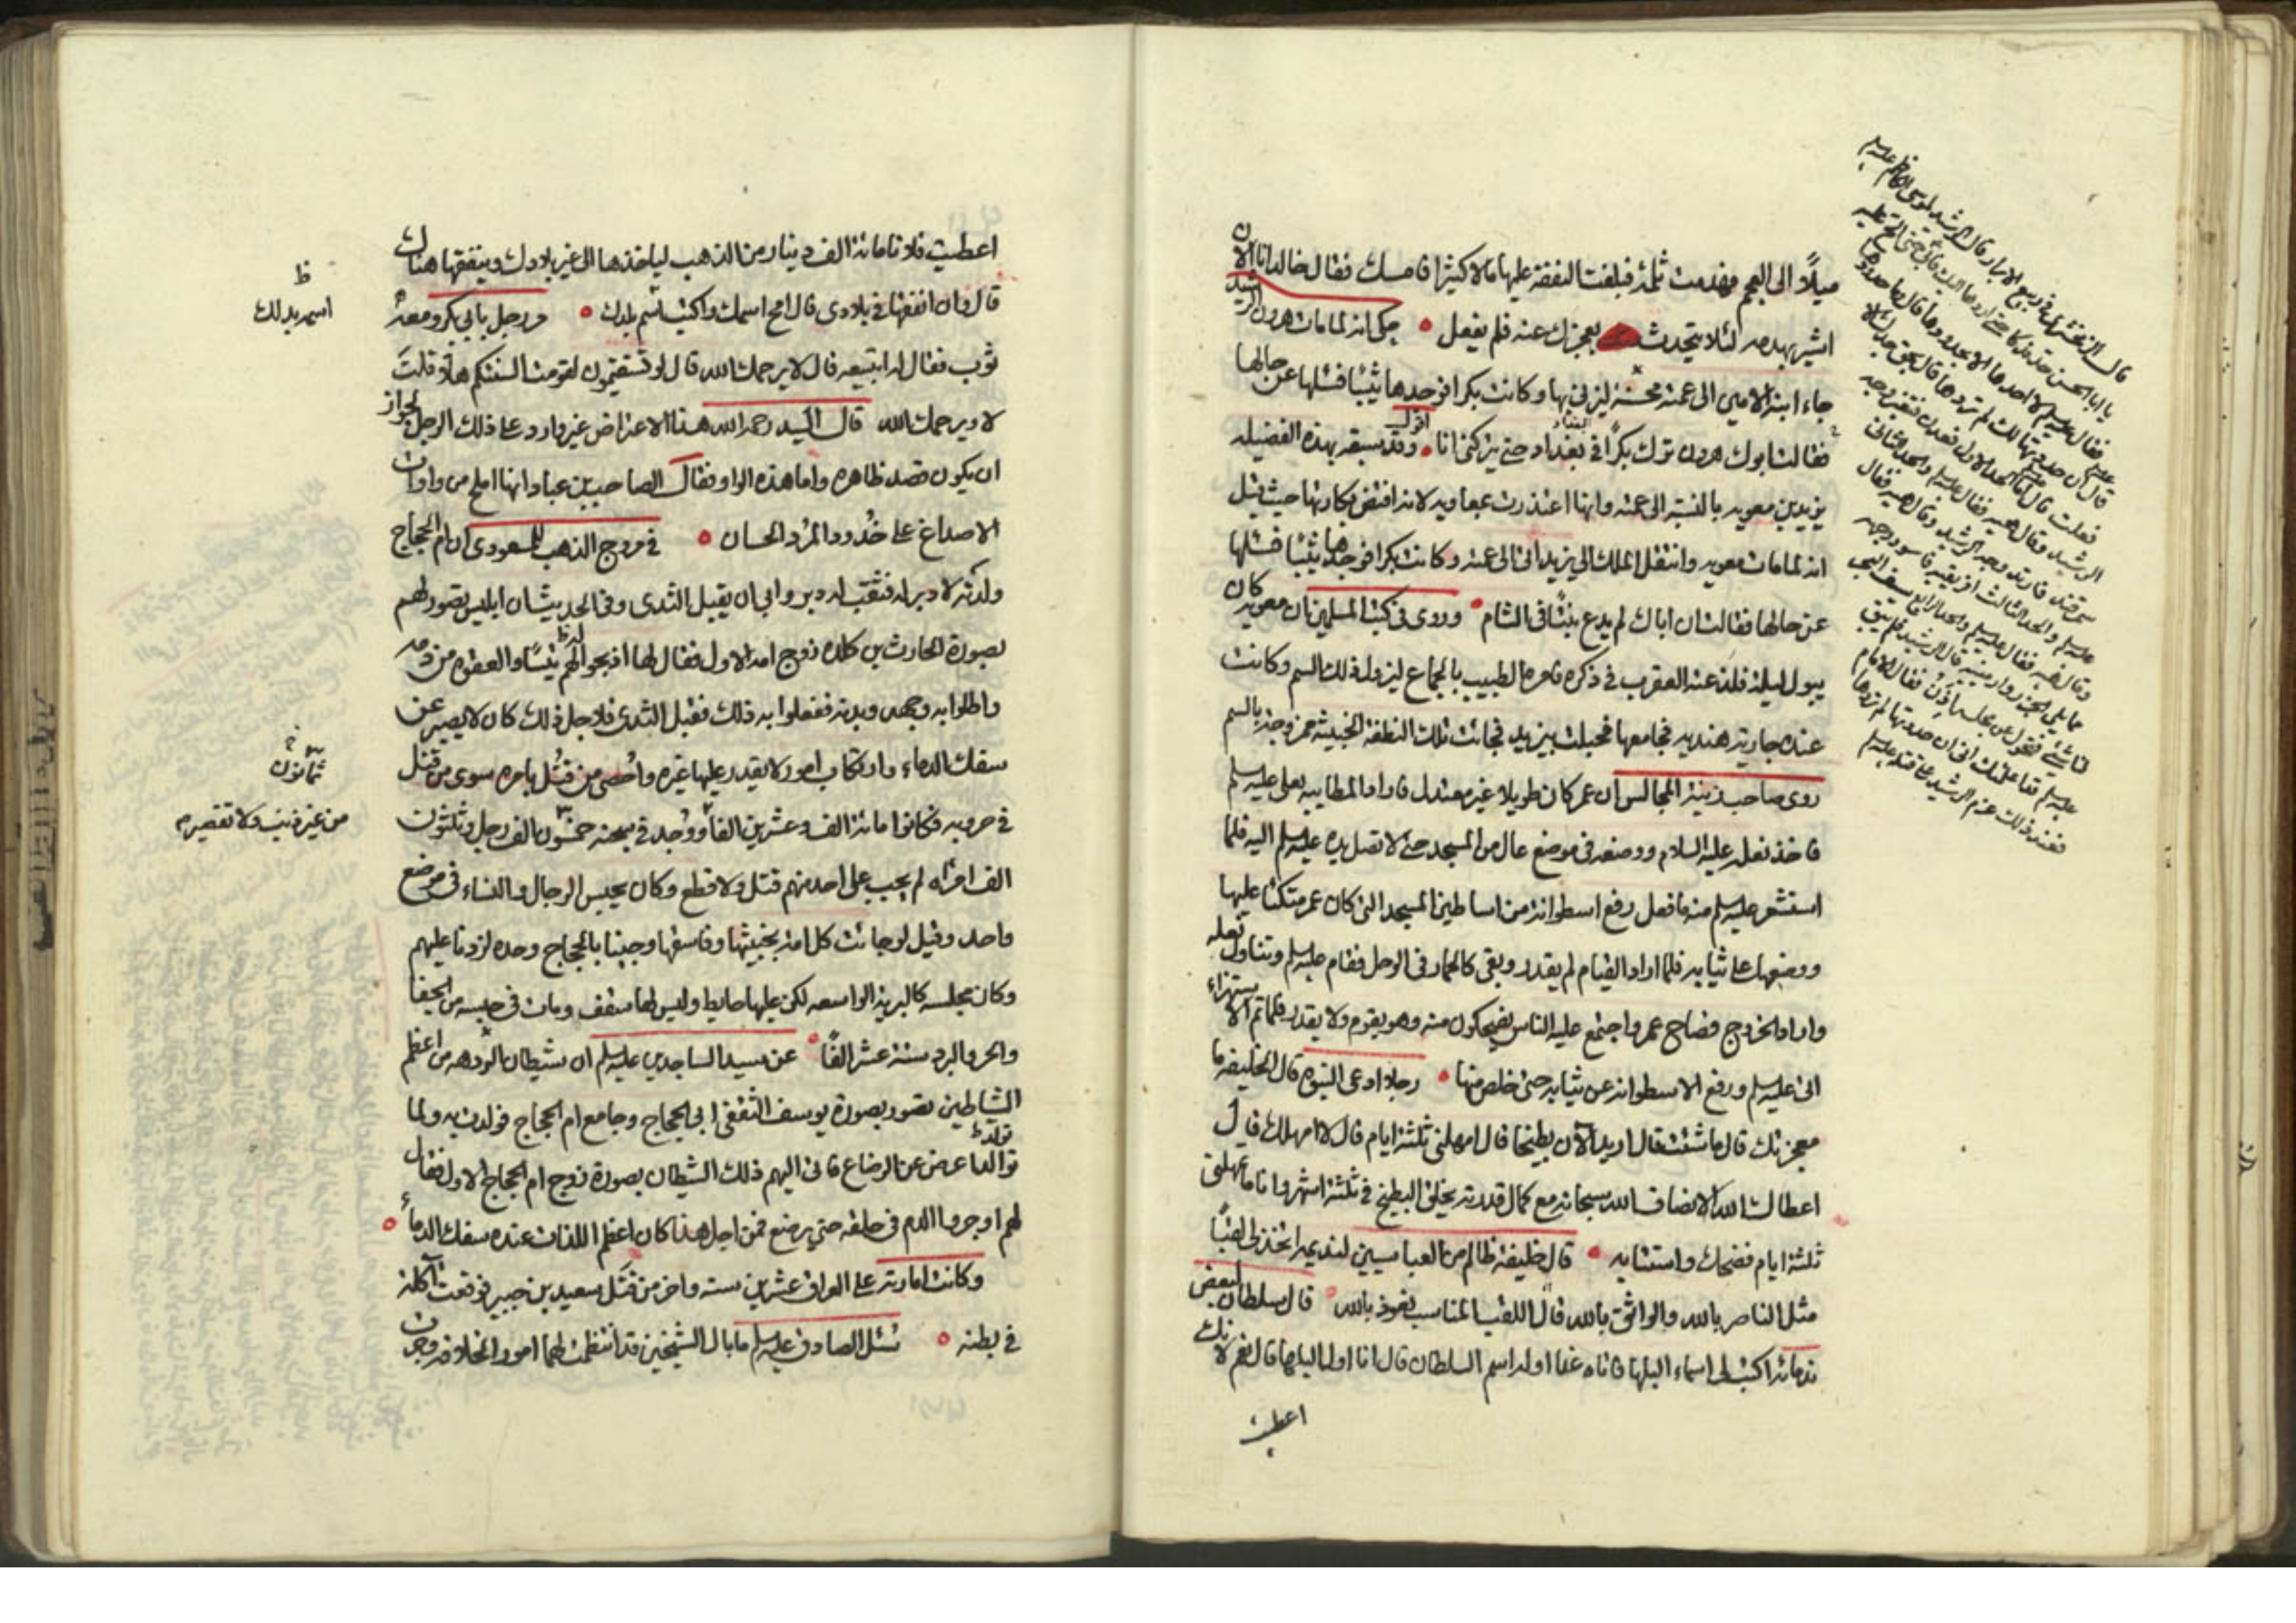 ميلاً الى العجم فهدمت ثلمة فبلغت النفقة عليها مالا كثيرا فامسك فقال خالد انا الان
اشير بهدمه لئلا يتحدث بعجزك عنه فلم يفعل ٥ حكى انه لما مات هرون الرشيد
جاء ابنه الامين الى عمته محسنة ليزني بها وكانت بكرا فوجدها ثيبا فسئلها عن حالها
فقالت ابوك هرون ترك بكرًا في بغداد حتى يتركني انا ٥ اقول وقد سبقه بهذه الفضيلة
يزيد بن معويه بالنسبة الى عمته وانها اعتذرت بمعاويه لانه افتض بكارتها حيث قيل
انه لما مات معويه وانتقل الملك الى يزيد اتى الى عمته وكانت بكرا فوجدها ثيبا فسئلها
عن حالها فقالت ان اباك لم يدع بنتًا في الشام ٥ وروى في كتب المسلمين ان معويه كان
يبول ليلة فلذعته العقرب في ذكره فامره الطبيب بالجماع ليزول ذلك السم وكانت
عنده جاريه هنديه فجامعها فحبلت بيزيد فجائت تلك النطفة الخبيثة ممزوجة بالسم
روى صاحب زينة المجالس ان عمر كان طويلا غير معتدل فاراد المطايبه بعلى عليه السلم
فاخذ نعله عليه السلام ووضعه في موضع عال من المسجد حتى لا تصل يده عليه السلم اليه فلما
استشعر عليه السلم منه ما فعل رفع اسطوانة من اساطين المسجد التي كان عمر متكئا عليها
ووضعها على ثيابه فلما اراد القيام لم يقدر وبقى كالحمار في الوحل فقام عليه السلم وتناول نعله
واراد الخروج فصاح عمر واجتمع عليه الناس يضحكون منه وهو يقوم ولا يقدر فلما تم الاستهزاء
اتى عليه السلم ورفع الاسطوانة عن ثيابه حتى خلص منها ٥ رجل ادعى النبوة قال الخليفه ما
معجزتك قال ما شئت فقال اريد الان بطيخا قال امهلني ثلثة ايام قال لا امهلك قال
اعطاك الله الانصاف الله سبحانه مع كمال قدرته يخلق البطيخ في ثلثة اشهر وانا ما تمهلني
ثلثة ايام فضحك واستتابه ٥ قال خليفة ظالم من العباسيين لنديمه اتخذ لى لقبًا
مثل الناصر بالله والواثق بالله قال اللقب المناسب نعوذ بالله ٥ قال سلطان لبعض
ندمائه اكتب لى اسماء البلها فاتاه غدا اوله اسم السلطان قال انا اول البلها قال نعم لانك
اعطيت
قال الزمخشري في ربيع الابرار قال الرشيد لموسى الكاظم عليه السلم
يا ابا الحسن خذ فدكا حتى اردها اليك فابى حتى الح عليه
فقال عليه السلم لا اخذها الا بحدودها قال وما حدودها
قال ان حددتها لك لم تردها قال بحق جدك الا
فعلت قال اما الحد الاول فعدن فتغير وجه
الرشيد وقال هيه فقال عليه السلم والحد الثاني
سمرقند فاربد وجه الرشيد وقال هيه فقال
عليه السلم والحد الثالث افريقيه فاسود وجهه
وقال هيه فقال عليه السلم والحد الرابع سيف البحر
مما يلي الخزر وارمينيه قال الرشيد فلم يبق
لنا شيئ فتحول عن مجلسي فقال الامام
عليه السلم قد اعلمتك اني ان حددتها لم تردها
فعند ذلك عزم الرشيد على قتله عليه السلم
اعطيت فلانا مائة الف دينار من الذهب لياخذها الى غير بلادك وينفقها هناك
قال وان انفقها في بلادى قال امح اسمك واكتب اسم بلدك ٥ مر رجل بابي بكر ومعه
ثوب فقال له ابتبيعه قال لا يرحمك الله قال لو تستقيمون لقومت السنتكم هلا قلت
لا ويرحمك الله قال السيد رحمه الله هذا الاعتراض غير وارد على ذلك الرجل لجواز
ان يكون قصد ظاهره واما هذه الواو فقال الصاحب بن عباد انها املح من واوات
الاصداغ على خُدود المُرد الحسان ٥ في مروج الذهب للمسعودى ان ام الحجاج
ولدته لا دبر له فثقب له دبر وابي ان يقبل الثدى وفي الحديث ان ابليس تصور لهم
بصورة الحارث بن كلده زوج امه الاول فقال لها اذبحوا لهم تيسًا والعقوه من دمه
واطلوا به وجهه وبدنه ففعلوا به ذلك فقبل الثدى فلاجل ذلك كان لا يصبر عن
سفك الدماء وارتكاب امور لا يقدر عليها غيره واُحصى من قُتل بامره سوى من قتل
في حروبه فكانوا مائة الف وعشرين الفا ووُجد في سجنه خمسون الف رجل وثلثون
الف امرأه لم يجب على احد منهم قتل ولا قطع وكان يحبس الرجال والنساء في موضع
واحد وقيل لو جائت كل امة بخبيثها وفاسقها وجئنا بالحجاج وحده لزدنا عليهم
وكان مجلسه كالبرية الواسعه لكن عليها حايط وليس لها سقف ومات في حبسه من الجفا
والحر والبرد ستة عشر الفًا ٥ عن سيد الساجدين عليه السلم ان شيطان الردهه من اعظم
الشياطين تصور بصورة يوسف الثقفي ابي الحجاج وجامع ام الحجاج فولدت به ولما
تولد اعرض عن الرضاع فاتى اليهم ذلك الشيطان بصورة زوج ام الحجاج الاول فقال
لهم اوجروا الدم في حلقه حتى يرضع فمن اجل هذا كان اعظم اللذات عنده سفك الدماء ٥
وكانت امارته على العراق عشرين سنه واخر من قتل سعيد بن جبير فوقعت آكلة
في بطنه ٥ سُئل الصادق عليه السلم ما بال الشيخين قد انتظمت لهما امور الخلافه وجرت
ظ
اسم بدلك
ثمانون
من غير ذنب ولا تقصير